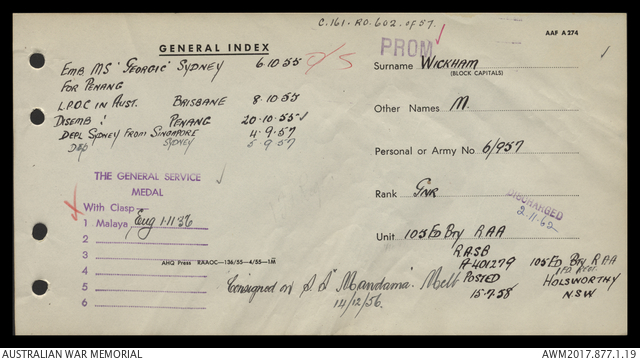 C.161-RO.602.of 57.
AAF A 274
GENERAL INDEX
PROM
EMB MS 'GEORGIC' SYDNEY 6.10.55 O/S
FOR PENANG
L.P.O.C IN AUST. BRISBANE 8.10.55
DISEMB: PENANG 20.10.55
DEPL SYDNEY FROM SINGAPORE 4.9.57
DEP SYDNEY 5.9.57
THE GENERAL SERVICE
MEDAL
With Clasp—
1 Malaya Eng 1-1136
2
3
4
5
6
AHQ Press RAAOC—136/55—4/55—1M
Consigned on S.S. "Mandama" Melb
14/12/56.
Surname WICKHAM
(BLOCK CAPITALS)
Other Names M.
Personal or Army No. 6/957
Rank GNR
DISCHARGED
2-11-62
Unit 105 FD BTY RAA
RASB
A-401279
POSTED
15.7.58
105 FD BTY RAA
HOLSWORTHY
N.S.W
AUSTRALIAN WAR MEMORIAL
AWM2017.877.1.19